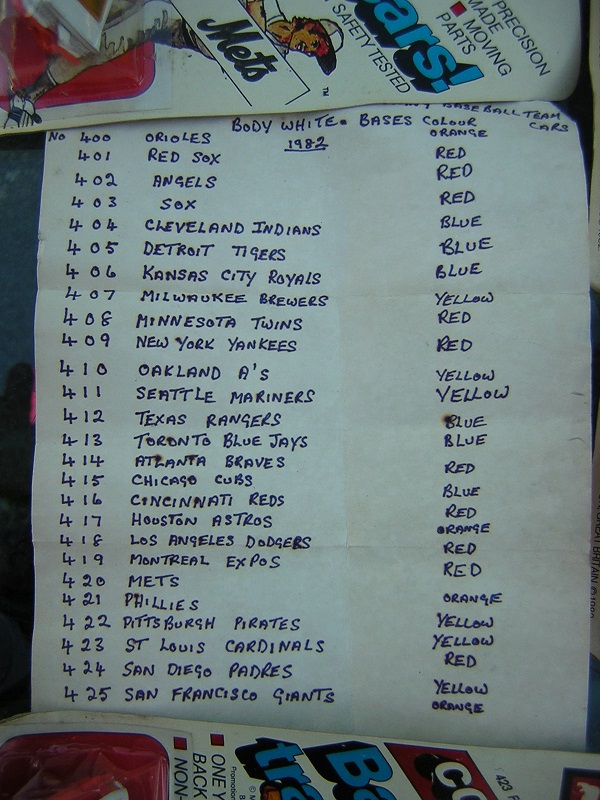 PRECISION
MADE
MOVING
PARTS
SAFETY TESTED
cars!
Mets
TM
BASEBALL TEAM
CARS
BODY WHITE. BASES COLOUR
1982
No 400 ORIOLES ORANGE
401 RED SOX RED
402 ANGELS RED
403 SOX RED
404 CLEVELAND INDIANS BLUE
405 DETROIT TIGERS BLUE
406 KANSAS CITY ROYALS BLUE
407 MILWAUKEE BREWERS YELLOW
408 MINNESOTA TWINS RED
409 NEW YORK YANKEES RED
410 OAKLAND A'S YELLOW
411 SEATTLE MARINERS YELLOW
412 TEXAS RANGERS BLUE
413 TORONTO BLUE JAYS BLUE
414 ATLANTA BRAVES RED
415 CHICAGO CUBS BLUE
416 CINCINNATI REDS RED
417 HOUSTON ASTROS ORANGE
418 LOS ANGELES DODGERS RED
419 MONTREAL EXPOS RED
420 METS ORANGE
421 PHILLIES YELLOW
422 PITTSBURGH PIRATES YELLOW
423 ST LOUIS CARDINALS RED
424 SAN DIEGO PADRES YELLOW
425 SAN FRANCISCO GIANTS ORANGE
ONE Y
BACK
NON-